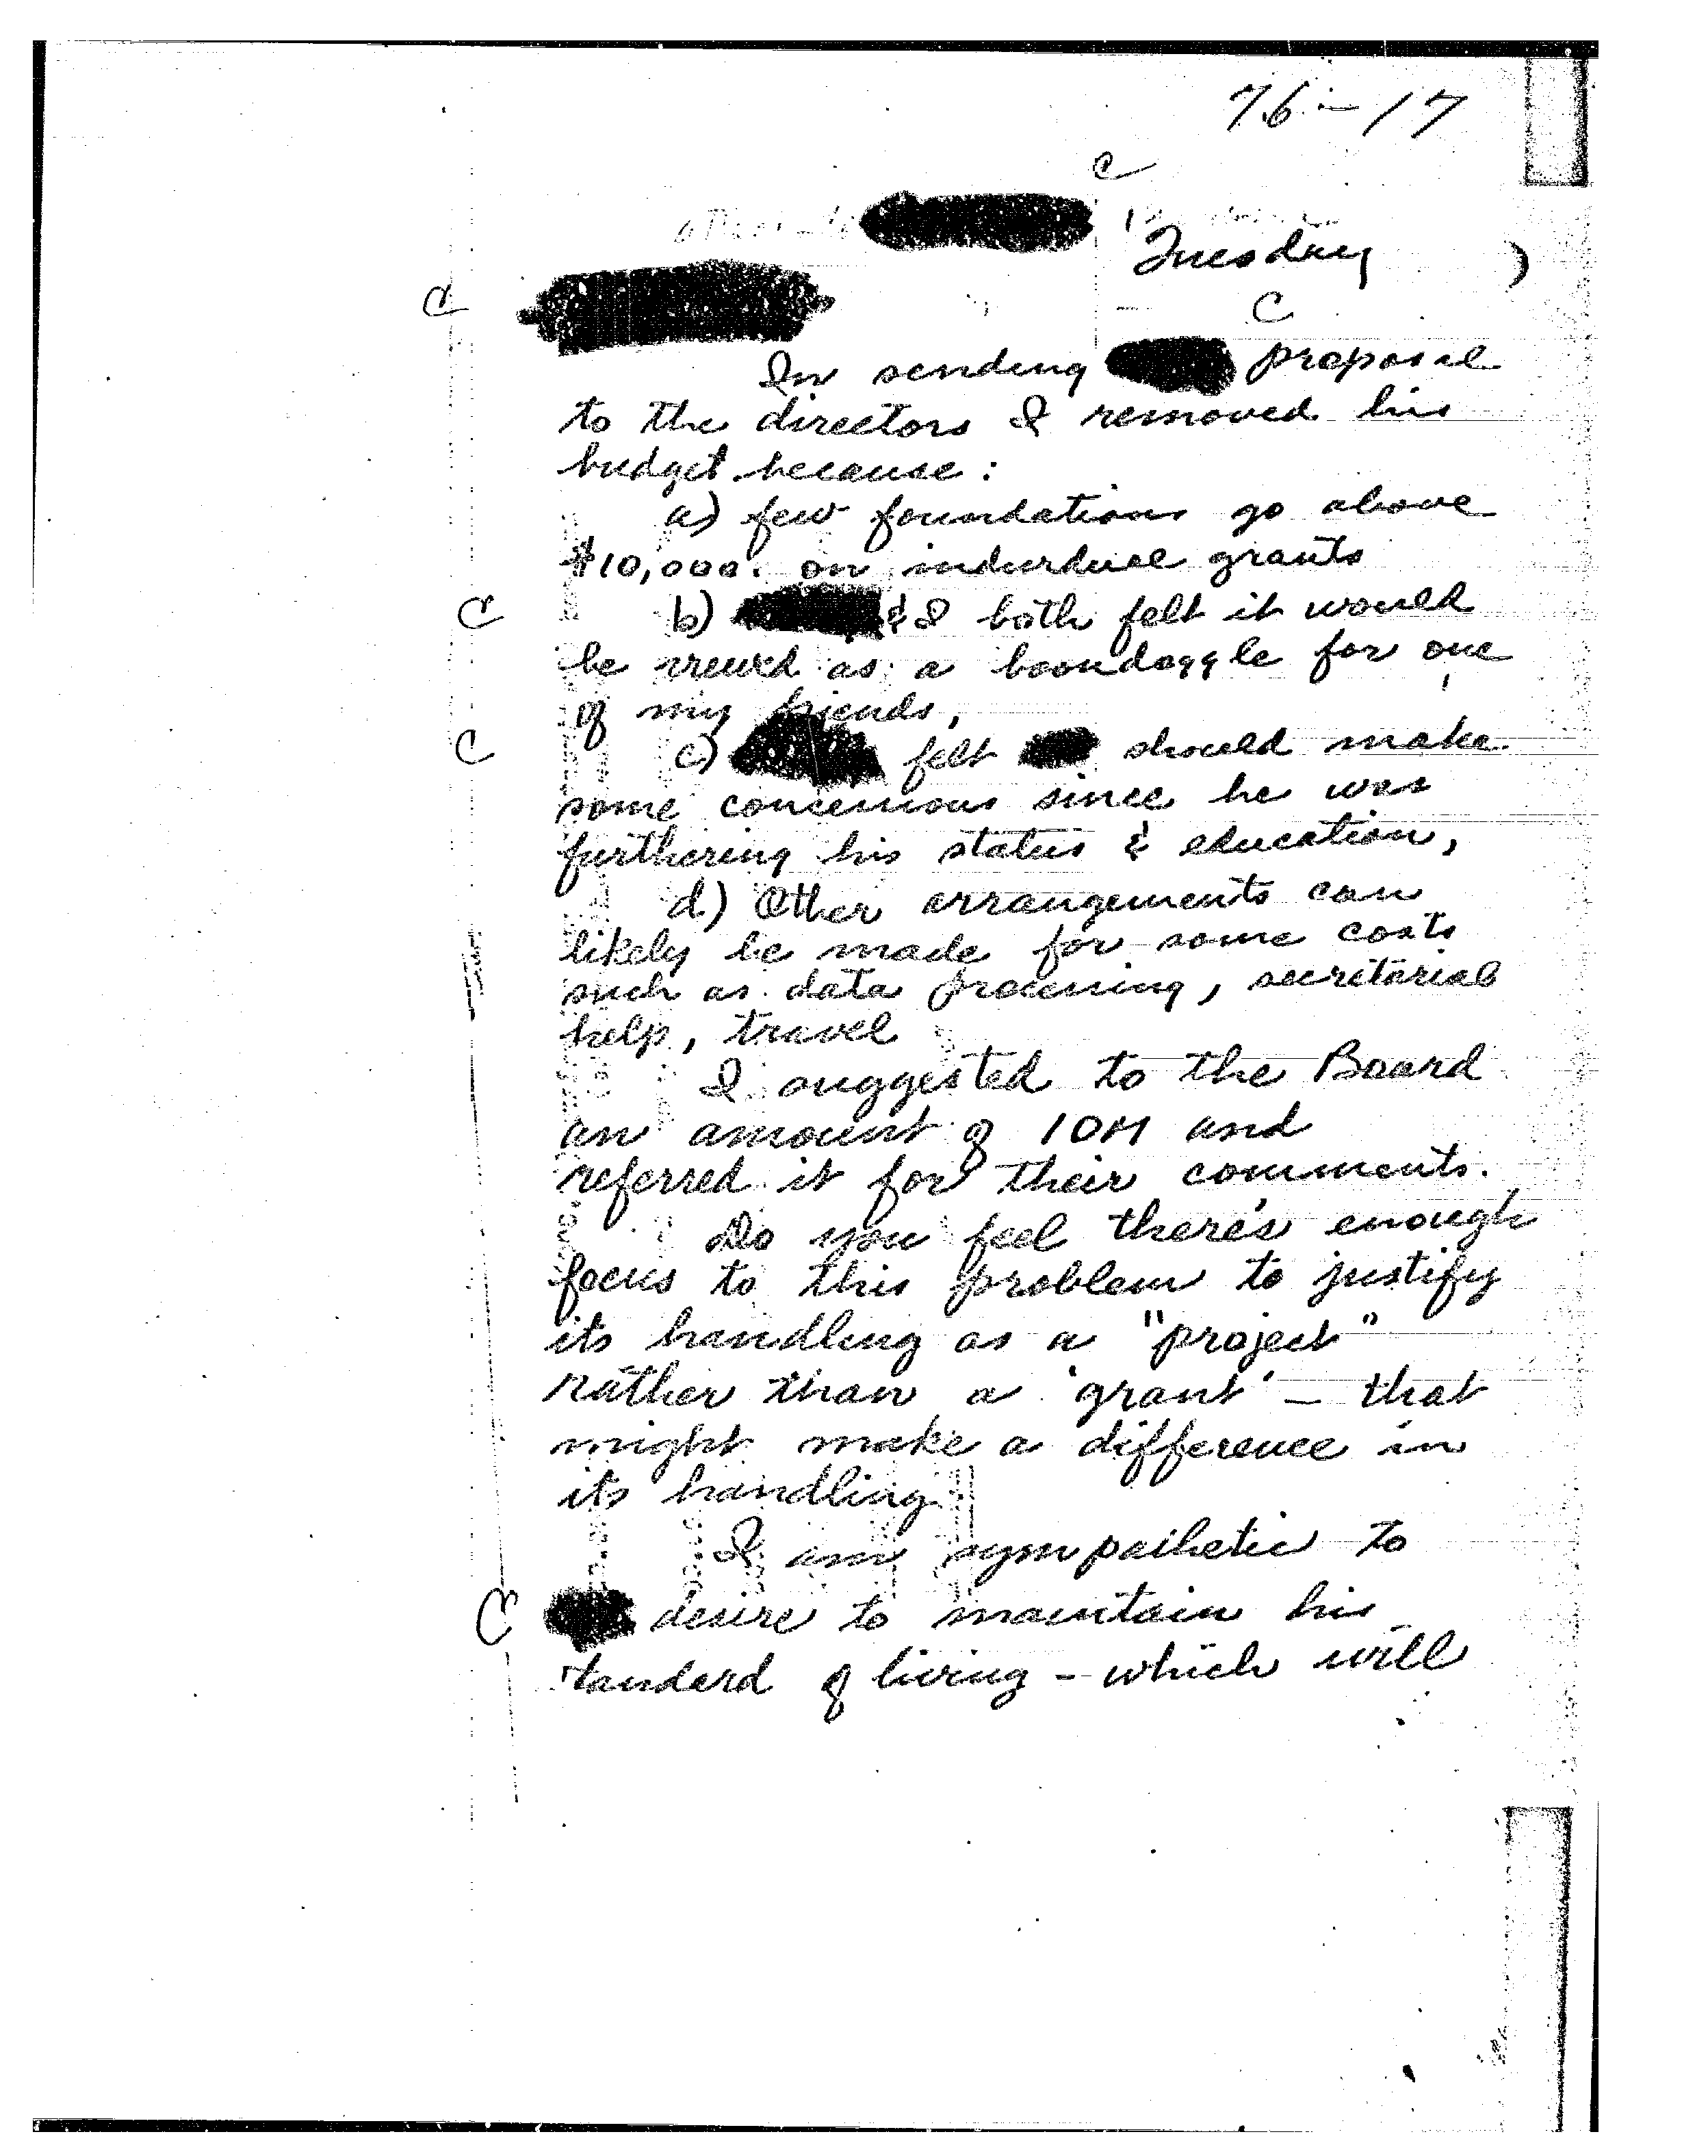 76-17
C
Tuesday
C
C
In sending proposal
to the directors I removed his
budget because:
a) few foundations go above
$10,000. on indurduel grants
C
b) & I both felt it would
be viewed as a boondoggle for one
of my friends,
C
c) felt should make
some concessions since he was
furthering his status & education,
d) Other arrangements can
likely be made for some costs
such as data processing, secretarial
help, travel
I suggested to the Board
an amount of 10M and
referred it for their comments.
Do you feel there's enough
focus to this problem to justify
its handling as a "project"
rather than a 'grant' – that
might make a difference in
its handling.
I am sympathetic to
C
desire to maintain his
standard of living – which will